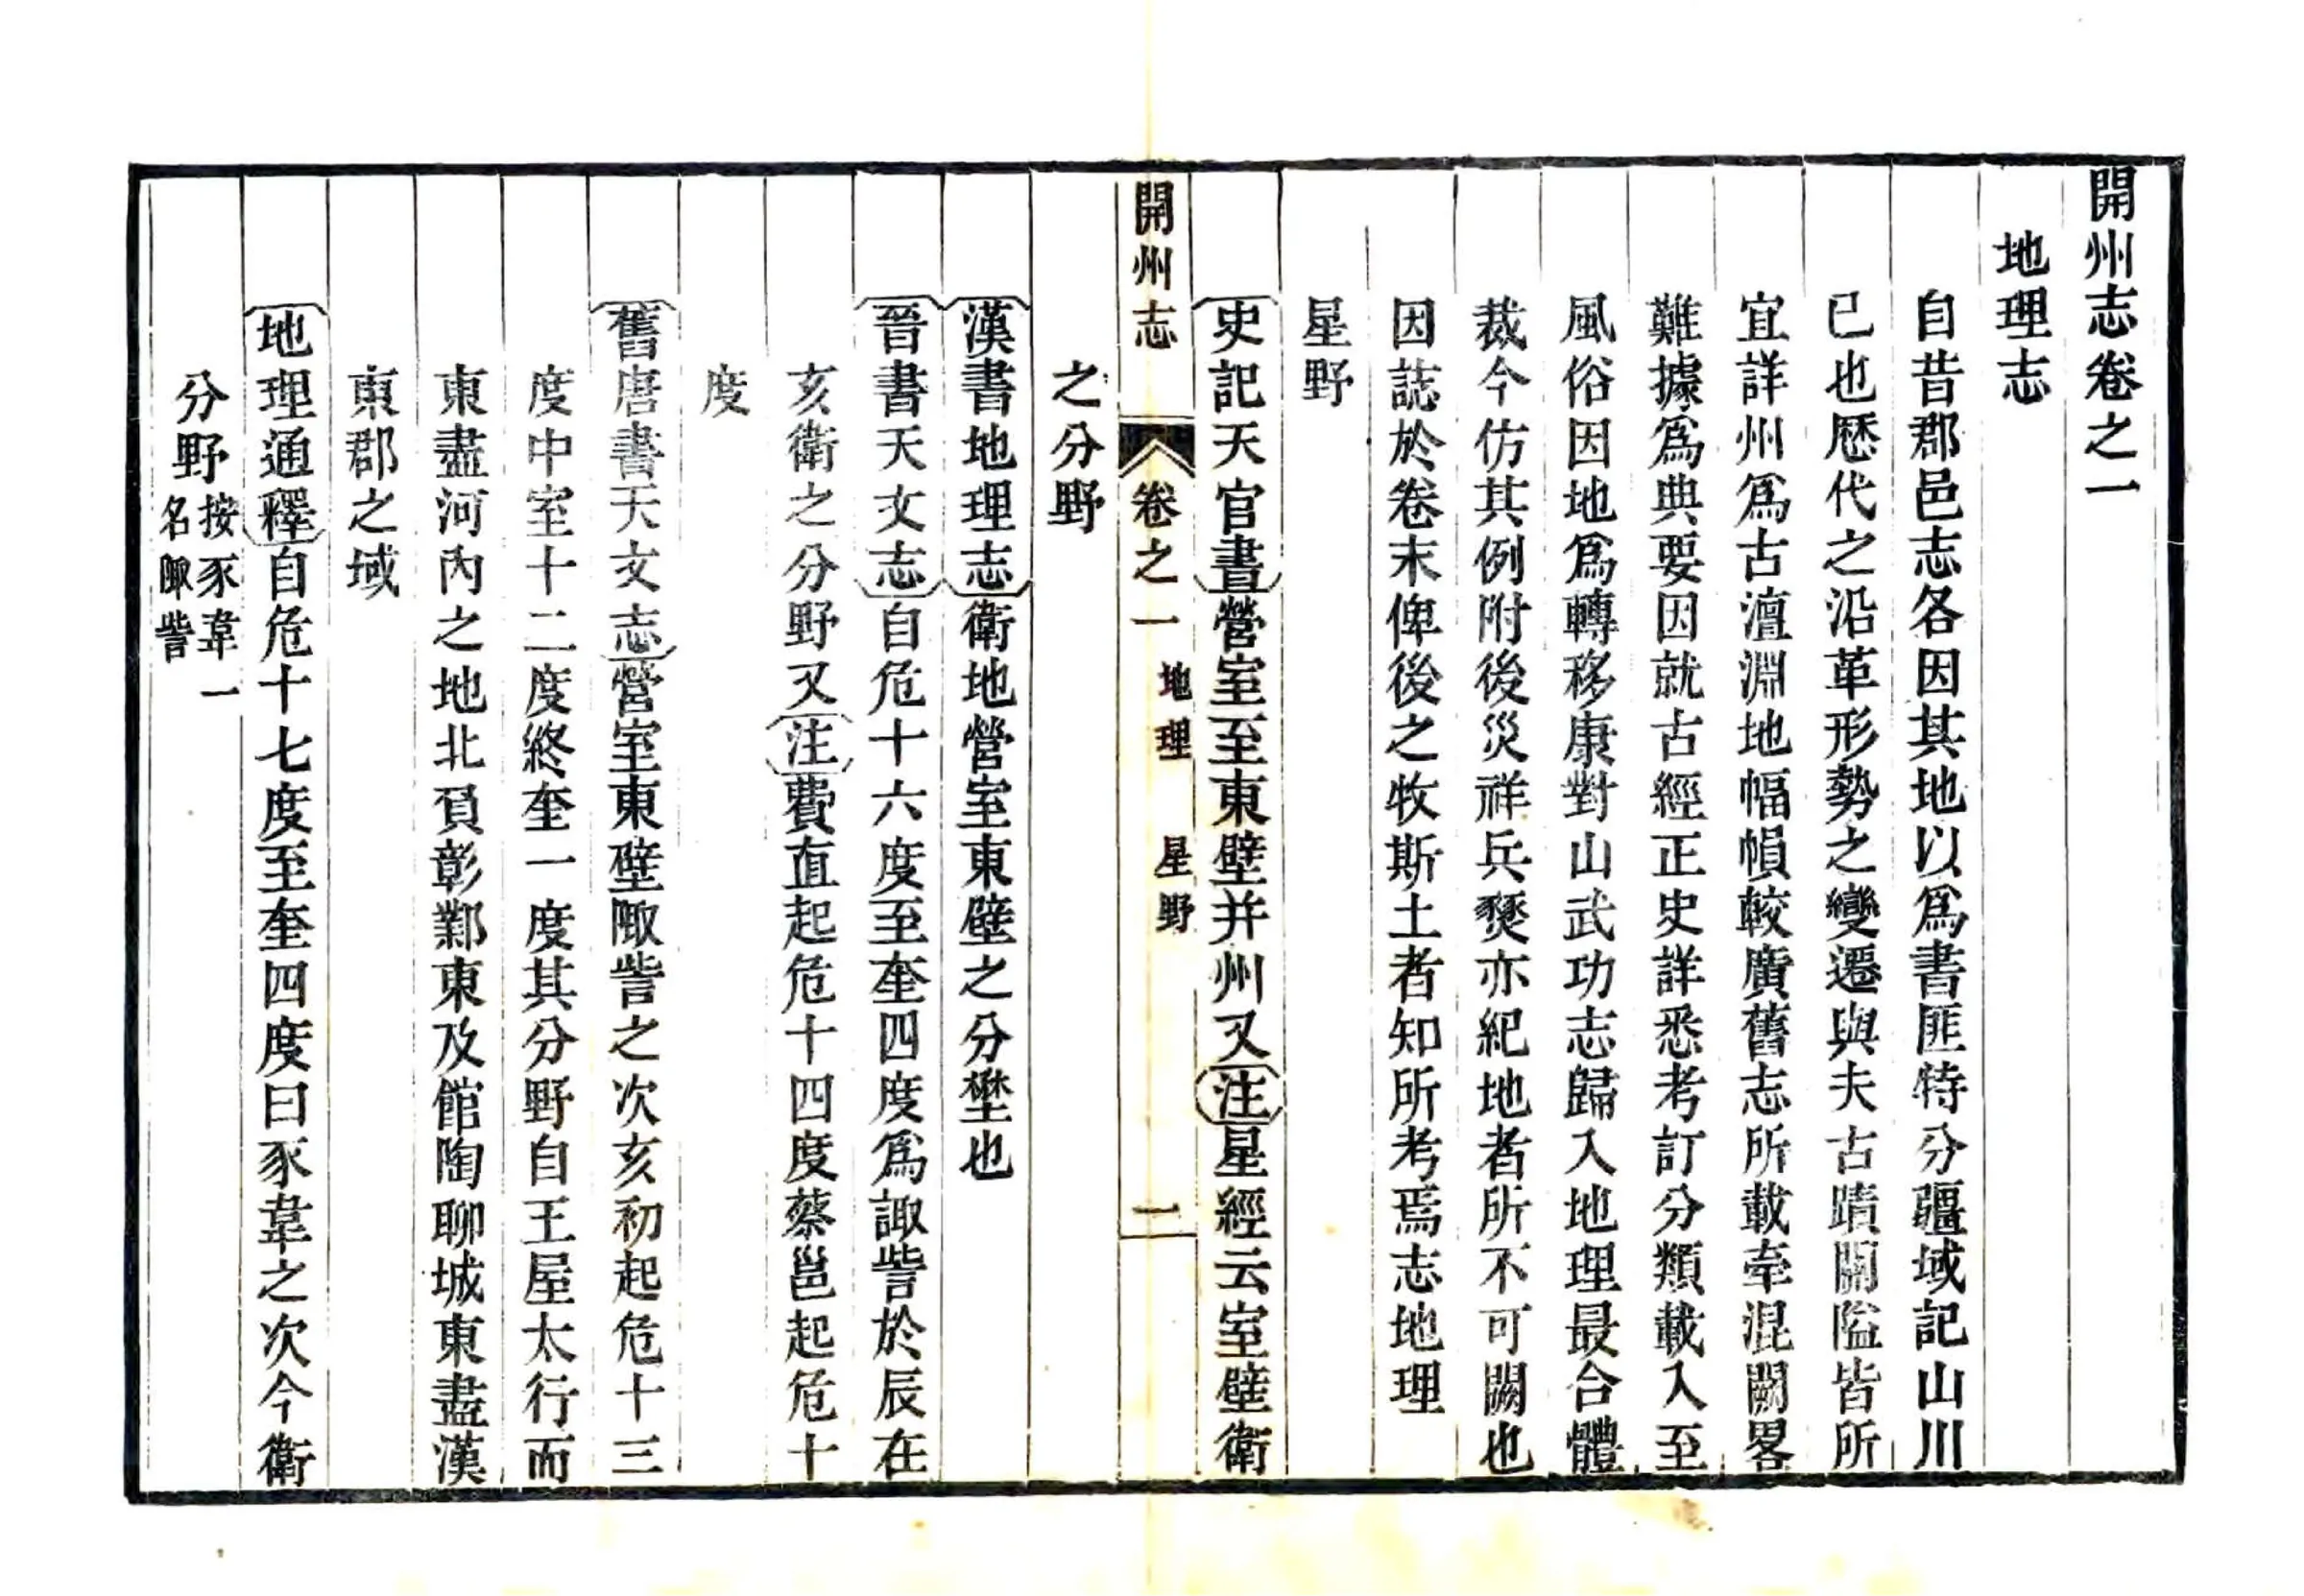 開州志卷之一
地理志
自昔郡邑志各因其地以爲書匪特分疆域記山川
已也歷代之沿革形勢之變遷與夫古蹟關隘皆所
宜詳州爲古澶淵地幅幁較廣舊志所載牽混闕畧
難據爲典要因就古經正史詳悉考訂分類載入至
風俗因地爲轉移康對山武功志歸入地理最合體
裁今仿其例附後災祥兵燹亦紀地者所不可闕也
因誌於卷末俾後之牧斯土者知所考焉志地理
星野
史記天官書營室至東壁并州又注星經云室壁衛
開州志 卷之一 地理 星野 一
之分野
漢書地理志衛地營室東壁之分壄也
晉書天文志自危十六度至奎四度爲諏訾於辰在
亥衛之分野又注費直起危十四度蔡邕起危十
度
舊唐書天文志營室東壁陬訾之次亥初起危十三
度中室十二度終奎一度其分野自王屋太行而
東盡河內之地北負彰鄴東及館陶聊城東盡漢
東郡之域
地理通釋自危十七度至奎四度曰豕韋之次今衛
分野按豕韋一
名陬訾